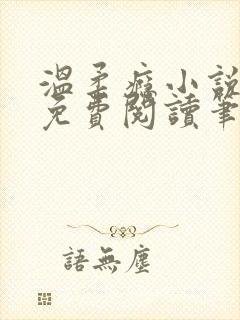 溫柔癮小說
免費閱讀筆
語無塵